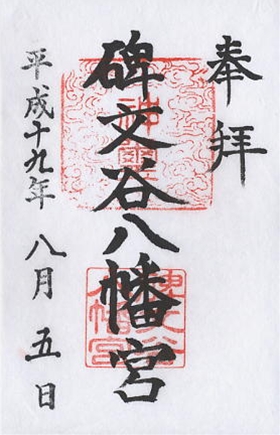 奉拝
碑文谷八幡宮
平成十九年八月五日
神璽
碑文谷八幡宮